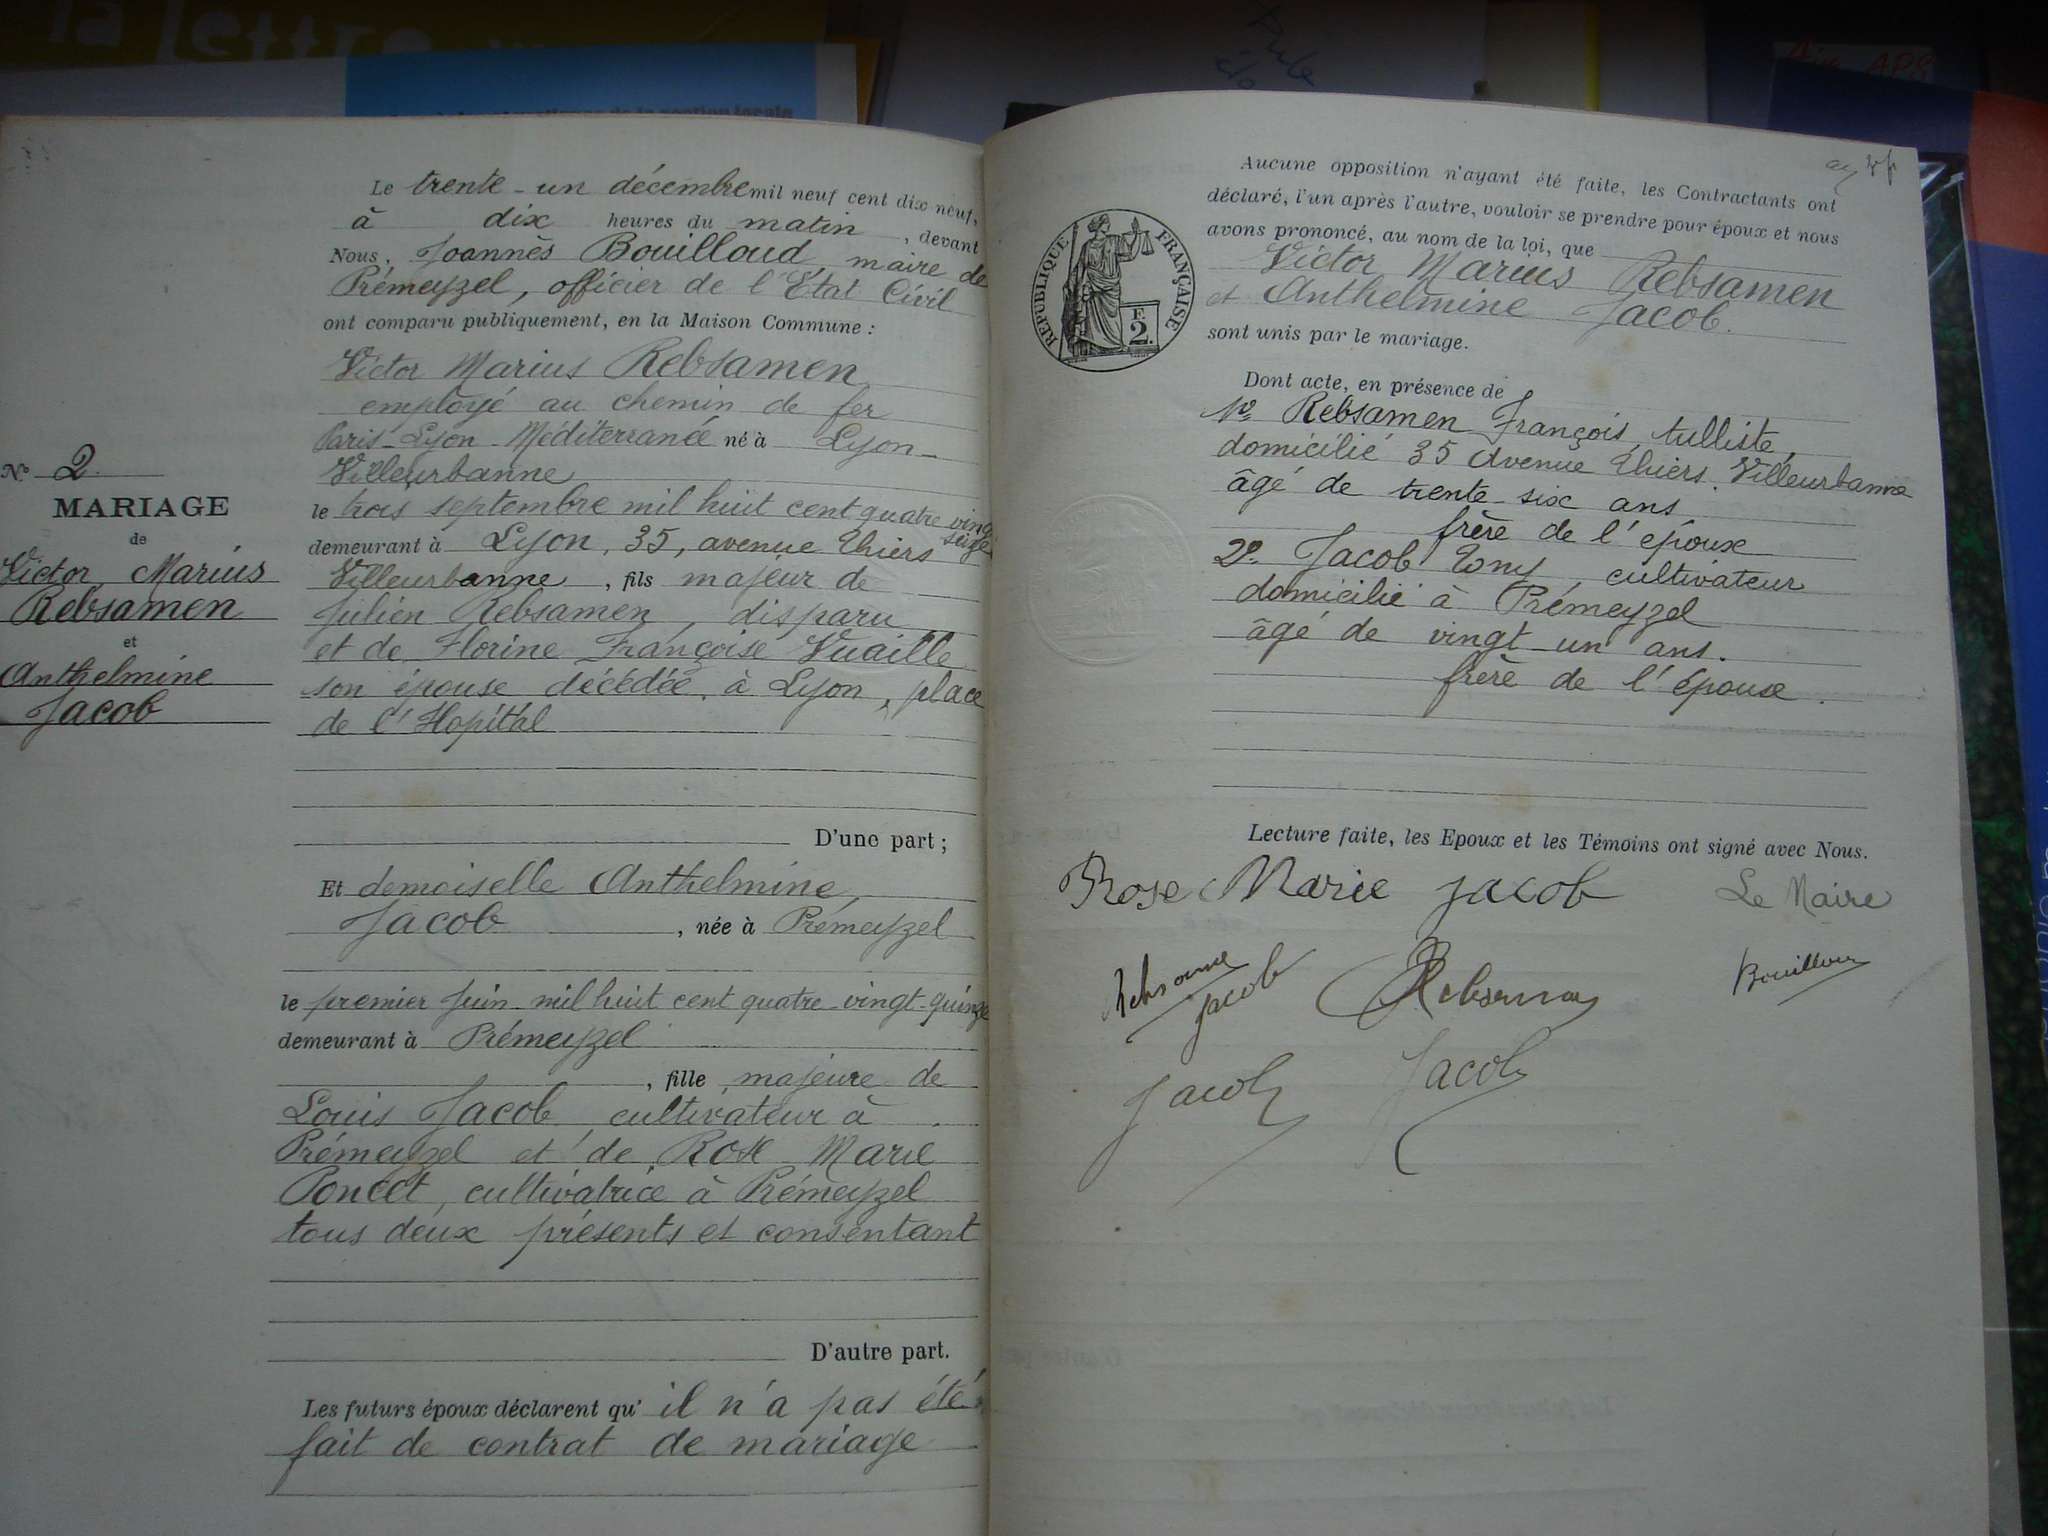 la lettre
No 2
MARIAGE
de
Victor Marius
Rebsamen
et
Anthelmine
Jacob
Le trente-un décembre mil neuf cent dix neuf,
à dix heures du matin, devant
Nous, Joannès Bouilloud maire de
Prémeyzel, officier de l'État Civil
ont comparu publiquement, en la Maison Commune :
Victor Marius Rebsamen
employé au chemin de fer
Paris-Lyon-Méditerranée né à Lyon-
Villeurbanne
le trois septembre mil huit cent quatre vingt
seize
demeurant à Lyon, 35, avenue Thiers
Villeurbanne, fils majeur de
Julien Rebsamen, disparu
et de Florine Françoise Vuaille
son épouse décédée à Lyon, place
de l'Hopital
D'une part ;
Et demoiselle Anthelmine
Jacob, née à Prémeyzel
le premier Juin mil huit cent quatre-vingt-quinze
demeurant à Prémeyzel
, fille majeure de
Louis Jacob cultivateur à
Prémeyzel et de Rose Marie
Poncet, cultivatrice à Prémeyzel
tous deux présents et consentant
D'autre part.
Les futurs époux déclarent qu'il n'a pas été
fait de contrat de mariage
Aucune opposition n'ayant été faite, les Contractants ont
déclaré, l'un après l'autre, vouloir se prendre pour époux et nous
avons prononcé, au nom de la loi, que
Victor Marius Rebsamen
et Anthelmine Jacob.
sont unis par le mariage.
RÉPUBLIQUE FRANÇAISE
F.
2.
Dont acte, en présence de
1o Rebsamen François, tulliste,
domicilié 35 Avenue Thiers. Villeurbanne
âgé de trente-six ans
frère de l'époux
2o Jacob Tony, cultivateur
domicilié à Prémeyzel
âgé de vingt-un ans.
frère de l'épouse.
Lecture faite, les Epoux et les Témoins ont signé avec Nous.
Rose Marie Jacob
Le Maire
Jacob
Rebsamen
Bouilloud
Jacob
Jacob